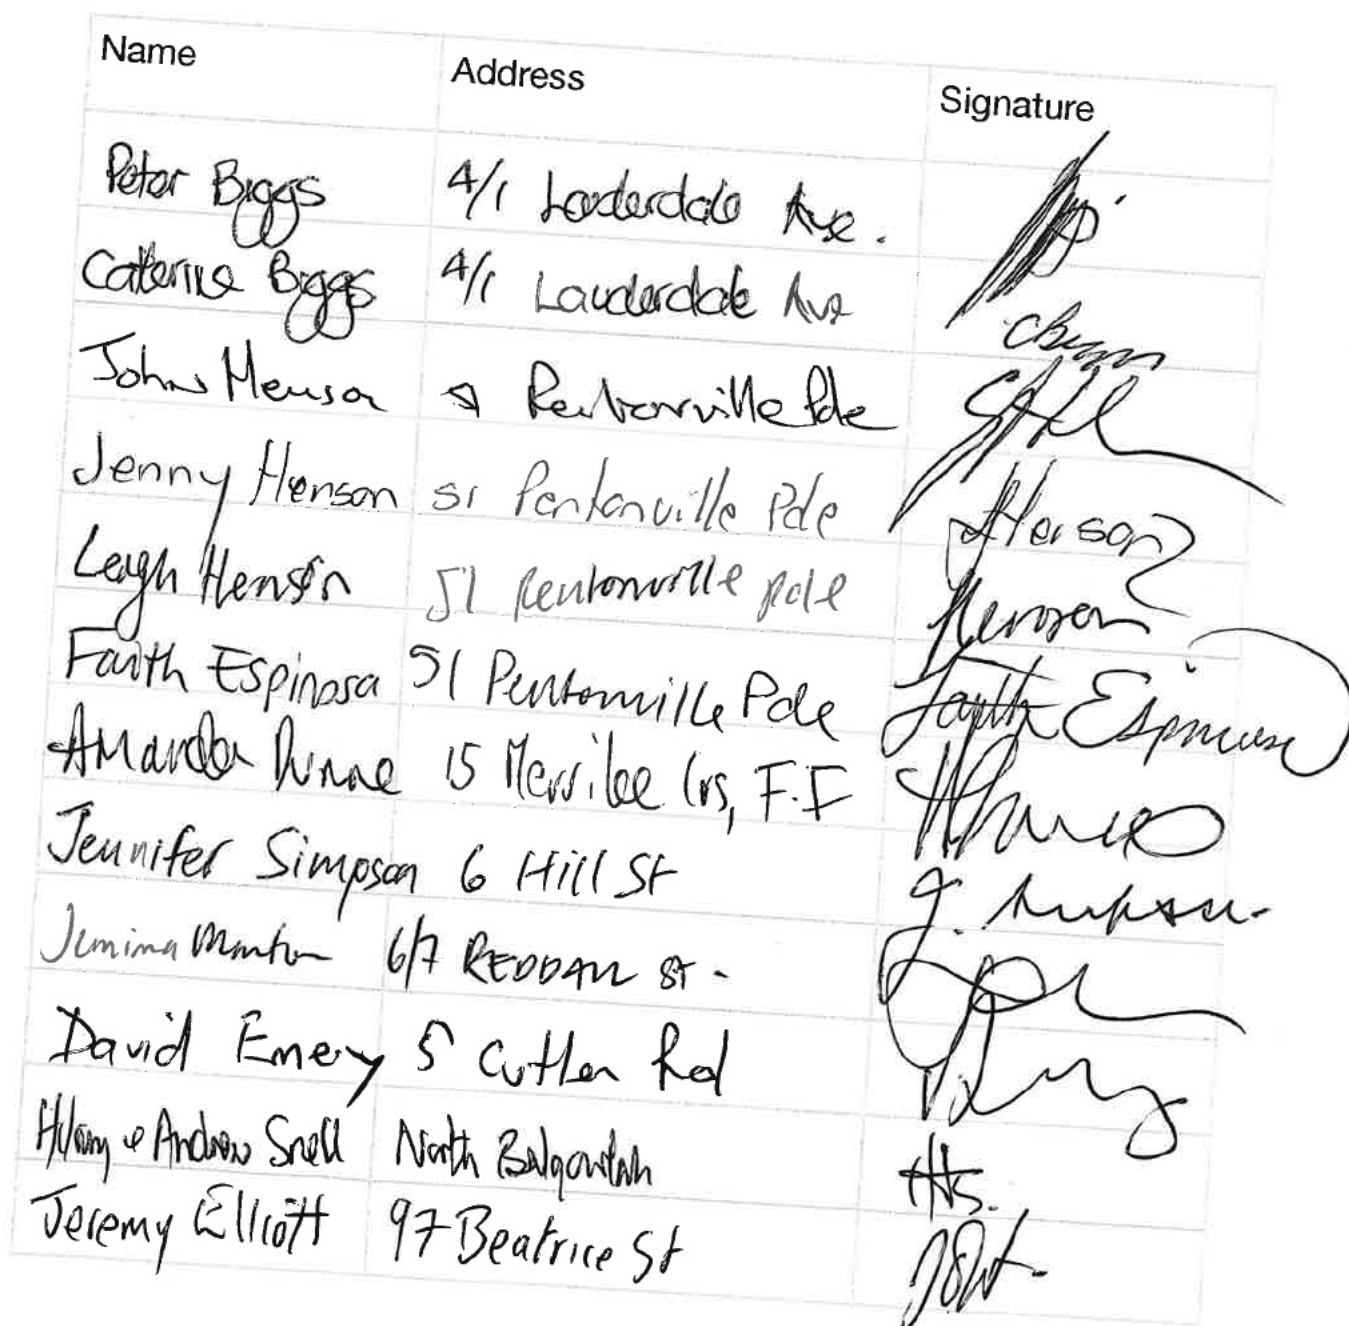 Name Address Signature
Peter Biggs 4/1 Lauderdale Ave.
Caterina Biggs 4/1 Lauderdale Ave
John Henson Pentonville Pde
Jenny Henson 51 Pentonville Pde JHenson
Leigh Henson 51 Pentonville Pde Henson
Faith Espinosa 51 Pentonville Pde Faith Espinosa
Amanda Dunne 15 Merrilee Crs, F.F
Jennifer Simpson 6 Hill St J. Simpson
Jemima 6/7 REDDALL ST -
David Emery 5 Cutler Rd
Hilary & Andrew Snell North Balgowlah HAS.
Jeremy Elliott 97 Beatrice St